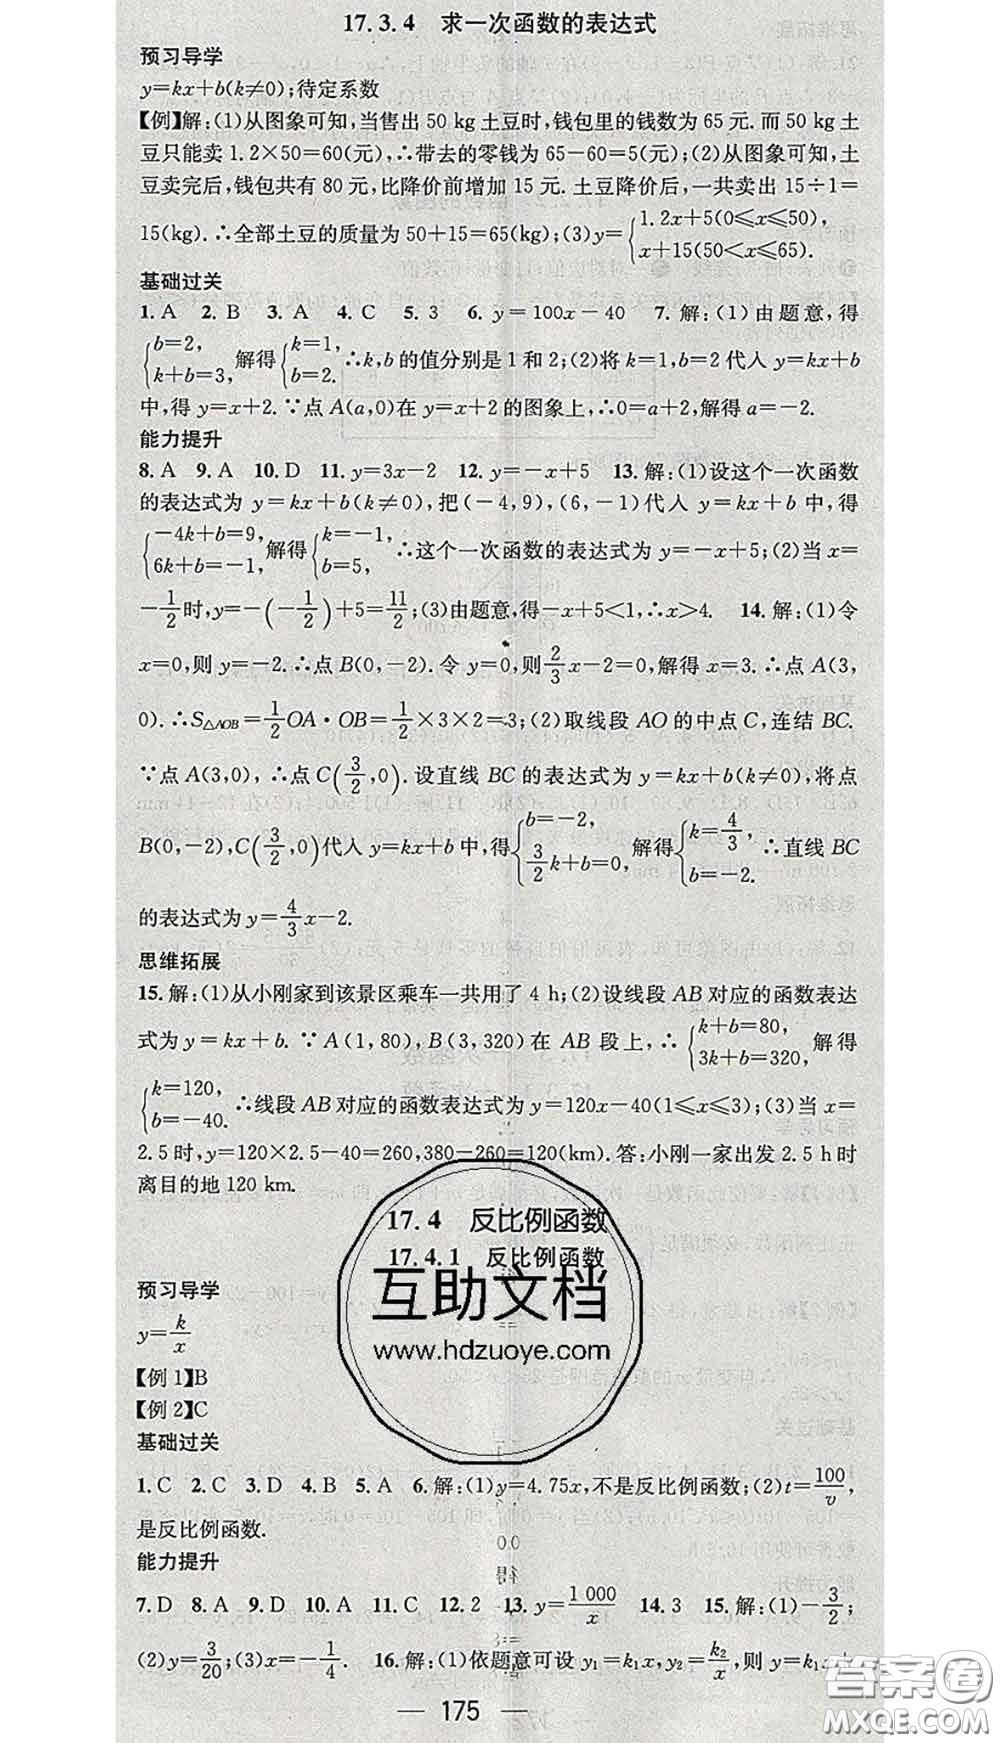 17.3.4 求一次函数的表达式
预习导学
y=kx+b(k≠0);待定系数
【例】解:(1)从图象可知,当售出 50 kg 土豆时,钱包里的钱数为 65 元.而 50 kg 土
豆只能卖 1.2×50=60(元),∴带去的零钱为 65-60=5(元);(2)从图象可知,土
豆卖完后,钱包共有 80 元,比降价前增加 15 元.土豆降价后,一共卖出 15÷1=
15(kg).∴全部土豆的质量为 50+15=65(kg);(3)y={1.2x+5(0≤x≤50), x+15(50<x≤65).
基础过关
1. A 2. B 3. A 4. C 5. 3 6. y=100x-40 7. 解:(1)由题意,得
{b=2, k+b=3, 解得{k=1, b=2. ∴k,b的值分别是 1 和 2;(2)将 k=1,b=2 代入 y=kx+b
中,得 y=x+2.∵点 A(a,0)在 y=x+2 的图象上,∴0=a+2,解得 a=-2.
能力提升
8. A 9. A 10. D 11. y=3x-2 12. y=-x+5 13. 解:(1)设这个一次函数
的表达式为 y=kx+b(k≠0),把(-4,9),(6,-1)代入 y=kx+b 中,得
{-4k+b=9, 6k+b=-1, 解得{k=-1, b=5, ∴这个一次函数的表达式为 y=-x+5;(2)当 x=
-1/2时,y=-(-1/2)+5=11/2;(3)由题意,得-x+5<1,∴x>4. 14. 解:(1)令
x=0,则 y=-2.∴点 B(0,-2).令 y=0,则2/3x-2=0,解得 x=3.∴点 A(3,
0).∴S△AOB=1/2OA·OB=1/2×3×2=3;(2)取线段 AO 的中点 C,连结 BC.
∵点 A(3,0),∴点 C(3/2,0).设直线 BC 的表达式为 y=kx+b(k≠0),将点
B(0,-2),C(3/2,0)代入 y=kx+b 中,得{b=-2, 3/2k+b=0, 解得{k=4/3, b=-2. ∴直线 BC
的表达式为 y=4/3x-2.
思维拓展
15. 解:(1)从小刚家到该景区乘车一共用了 4 h;(2)设线段 AB 对应的函数表达
式为 y=kx+b.∵A(1,80),B(3,320)在 AB 段上,∴{k+b=80, 3k+b=320, 解得
{k=120, b=-40. ∴线段 AB 对应的函数表达式为 y=120x-40(1≤x≤3);(3)当 x=
2.5 时,y=120×2.5-40=260,380-260=120(km).答:小刚一家出发 2.5 h 时
离目的地 120 km.
17.4 反比例函数
17.4.1 反比例函数
预习导学
y=k/x
【例 1】B
【例 2】C
基础过关
1. C 2. C 3. D 4. C 5. A 6. 解:(1)y=4.75x,不是反比例函数;(2)t=100/v,
是反比例函数.
能力提升
7. D 8. A 9. D 10. A 11. C 12. 2 13. y=1 000/x 14. 3 15. 解:(1)-3/2;
(2)y=3/20;(3)x=-1/4. 16. 解:(1)依题意可设 y₁=k₁x,y₂=k₂/x,则 y=k₁x+
— 175 —
互助文档
www.hdzuoye.com
答案圈
MXQE.COM